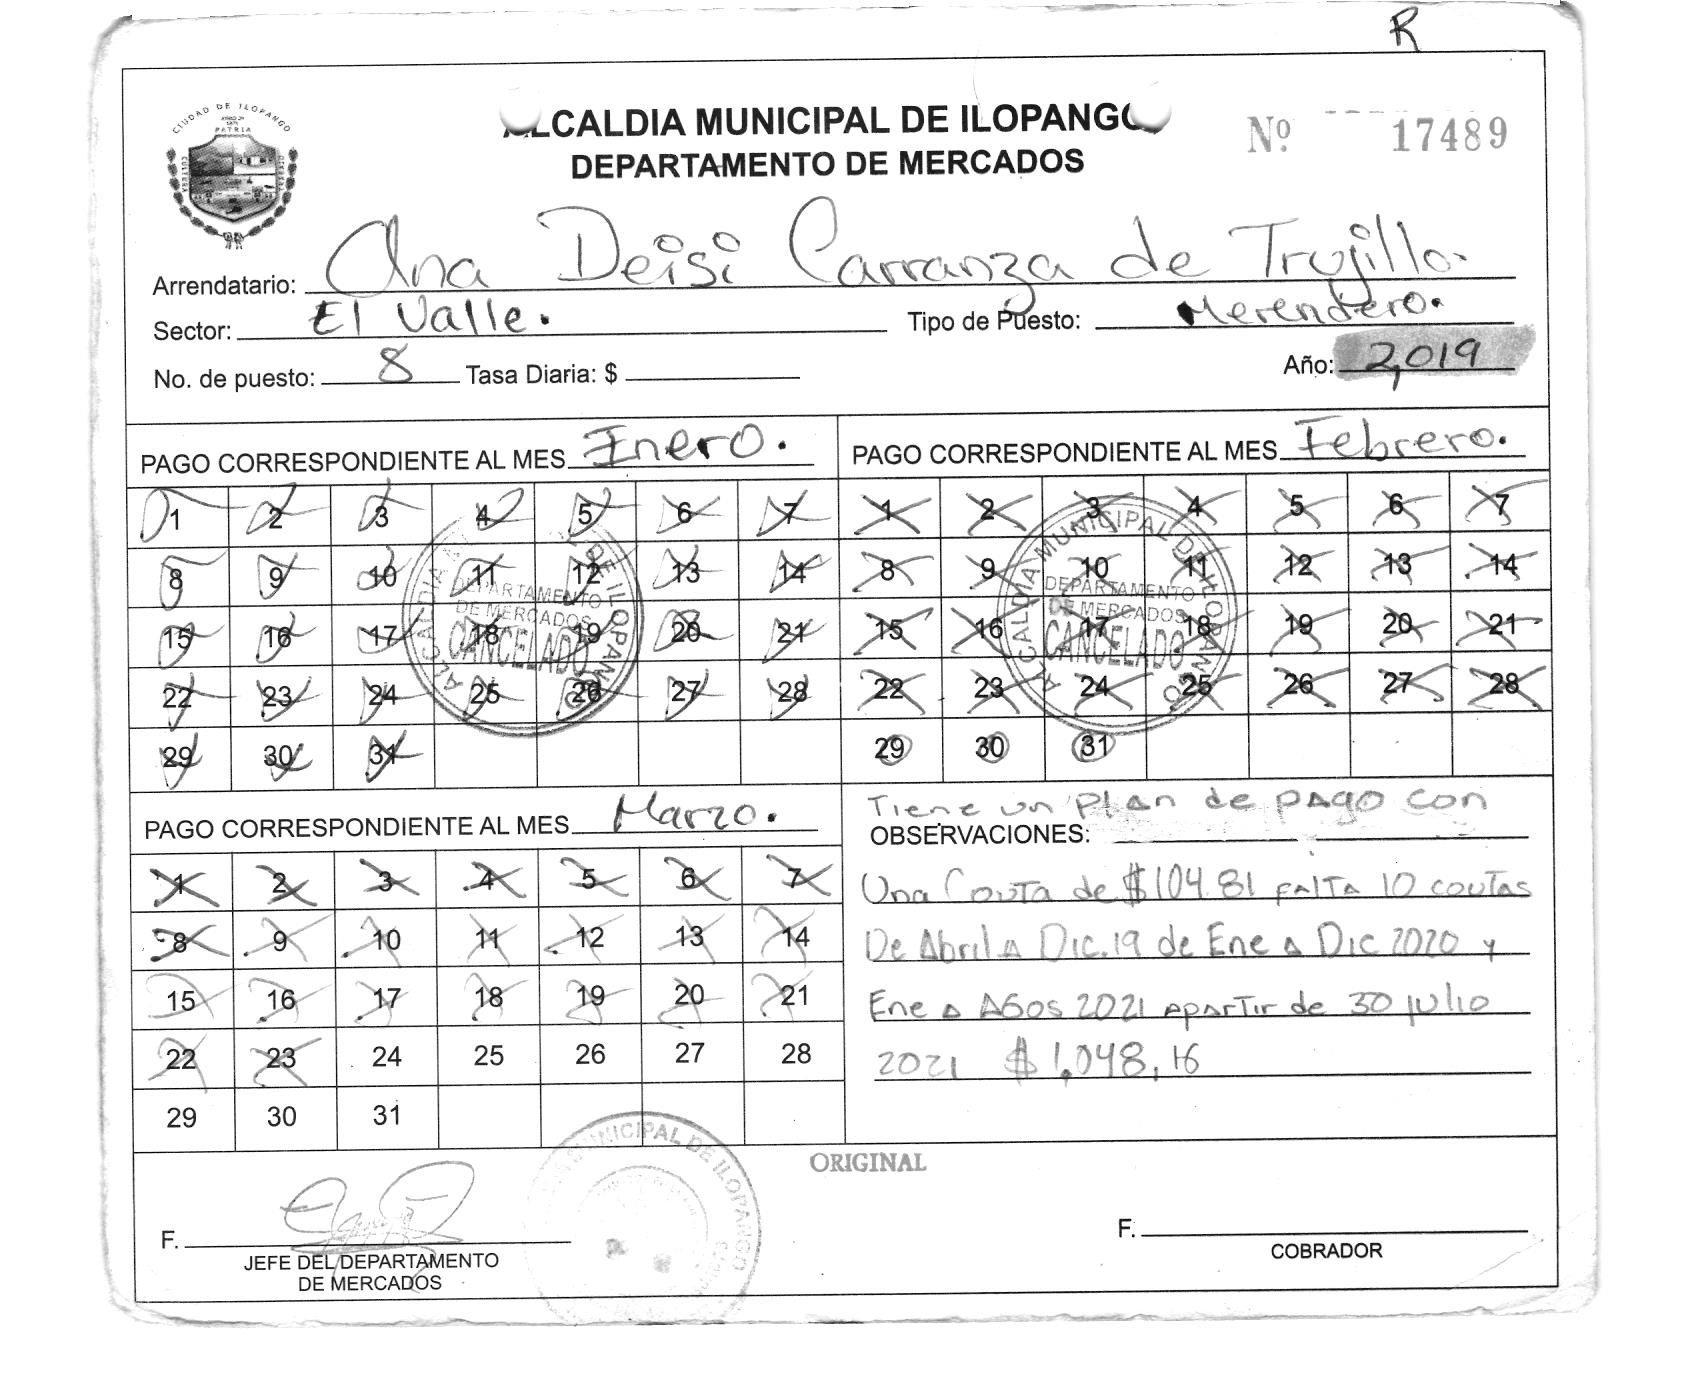 R
CIUDAD DE ILOPANGO
PATRIA
ALCALDIA MUNICIPAL DE ILOPANGO
Nº 17489
DEPARTAMENTO DE MERCADOS
Arrendatario: Ana Deisi Carranza de Trujillo.
Sector: El Valle. Tipo de Puesto: Merendero.
No. de puesto: 8 Tasa Diaria: $ Año: 2,019
PAGO CORRESPONDIENTE AL MES Enero.
1 2 3 4 5 6 7
8 9 10 11 12 13 14
15 16 17 18 19 20 21
22 23 24 25 26 27 28
29 30 31
ALCALDIA MUNICIPAL DE ILOPANGO
DEPARTAMENTO
DE MERCADOS
CANCELADO
PAGO CORRESPONDIENTE AL MES Febrero.
1 2 3 4 5 6 7
8 9 10 11 12 13 14
15 16 17 18 19 20 21
22 23 24 25 26 27 28
29 30 31
ALCALDIA MUNICIPAL DE ILOPANGO
DEPARTAMENTO
DE MERCADOS
CANCELADO
PAGO CORRESPONDIENTE AL MES Marzo.
1 2 3 4 5 6 7
8 9 10 11 12 13 14
15 16 17 18 19 20 21
22 23 24 25 26 27 28
29 30 31
Tiene un plan de pago con
OBSERVACIONES:
Una Couta de $104.81 falta 10 coutas
De Abril a Dic.19 de Ene a Dic 2020 y
Ene a Agos 2021 apartir de 30 julio
2021 $1,048,16
ORIGINAL
MUNICIPAL DE ILOPANGO
F.
JEFE DEL DEPARTAMENTO
DE MERCADOS
F.
COBRADOR